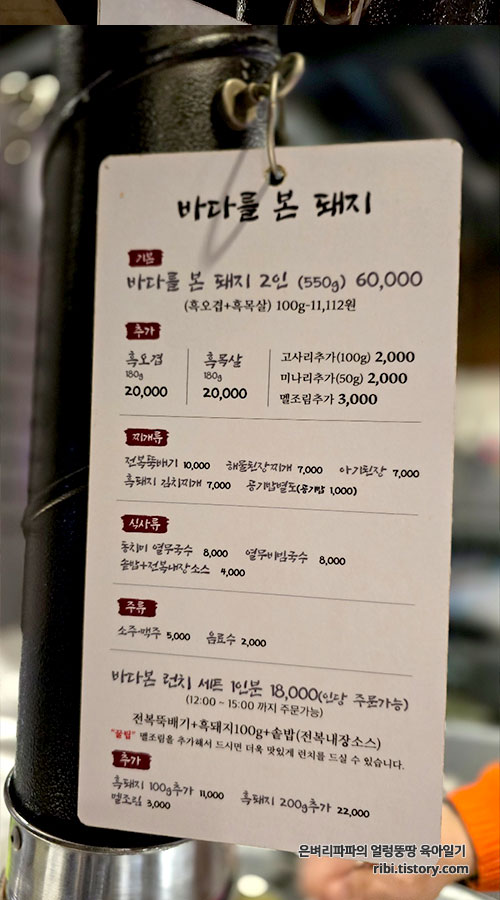 바다를 본 돼지
기본
바다를 본 돼지 2인 (550g) 60,000
(흑오겹+흑목살) 100g-11,112원
추가
흑오겹
180g
20,000
흑목살
180g
20,000
고사리추가(100g) 2,000
미나리추가(50g) 2,000
멜조림추가 3,000
찌개류
전복뚝배기 10,000 해물된장찌개 7,000 아기된장 7,000
흑돼지 김치찌개 7,000 공기밥별도(공기밥 1,000)
식사류
동치미 열무국수 8,000 열무비빔국수 8,000
솥밥+전복내장소스 4,000
주류
소주·맥주 5,000 음료수 2,000
바다본 런치 세트 1인분 18,000(인당 주문가능)
(12:00 ~ 15:00 까지 주문가능)
전복뚝배기+흑돼지100g+솥밥(전복내장소스)
"꿀팁" 멜조림을 추가해서 드시면 더욱 맛있게 런치를 드실 수 있습니다.
추가
흑돼지 100g추가 11,000 흑돼지 200g추가 22,000
멜조림 3,000
은벼리파파의 얼렁뚱땅 육아일기
ribi.tistory.com